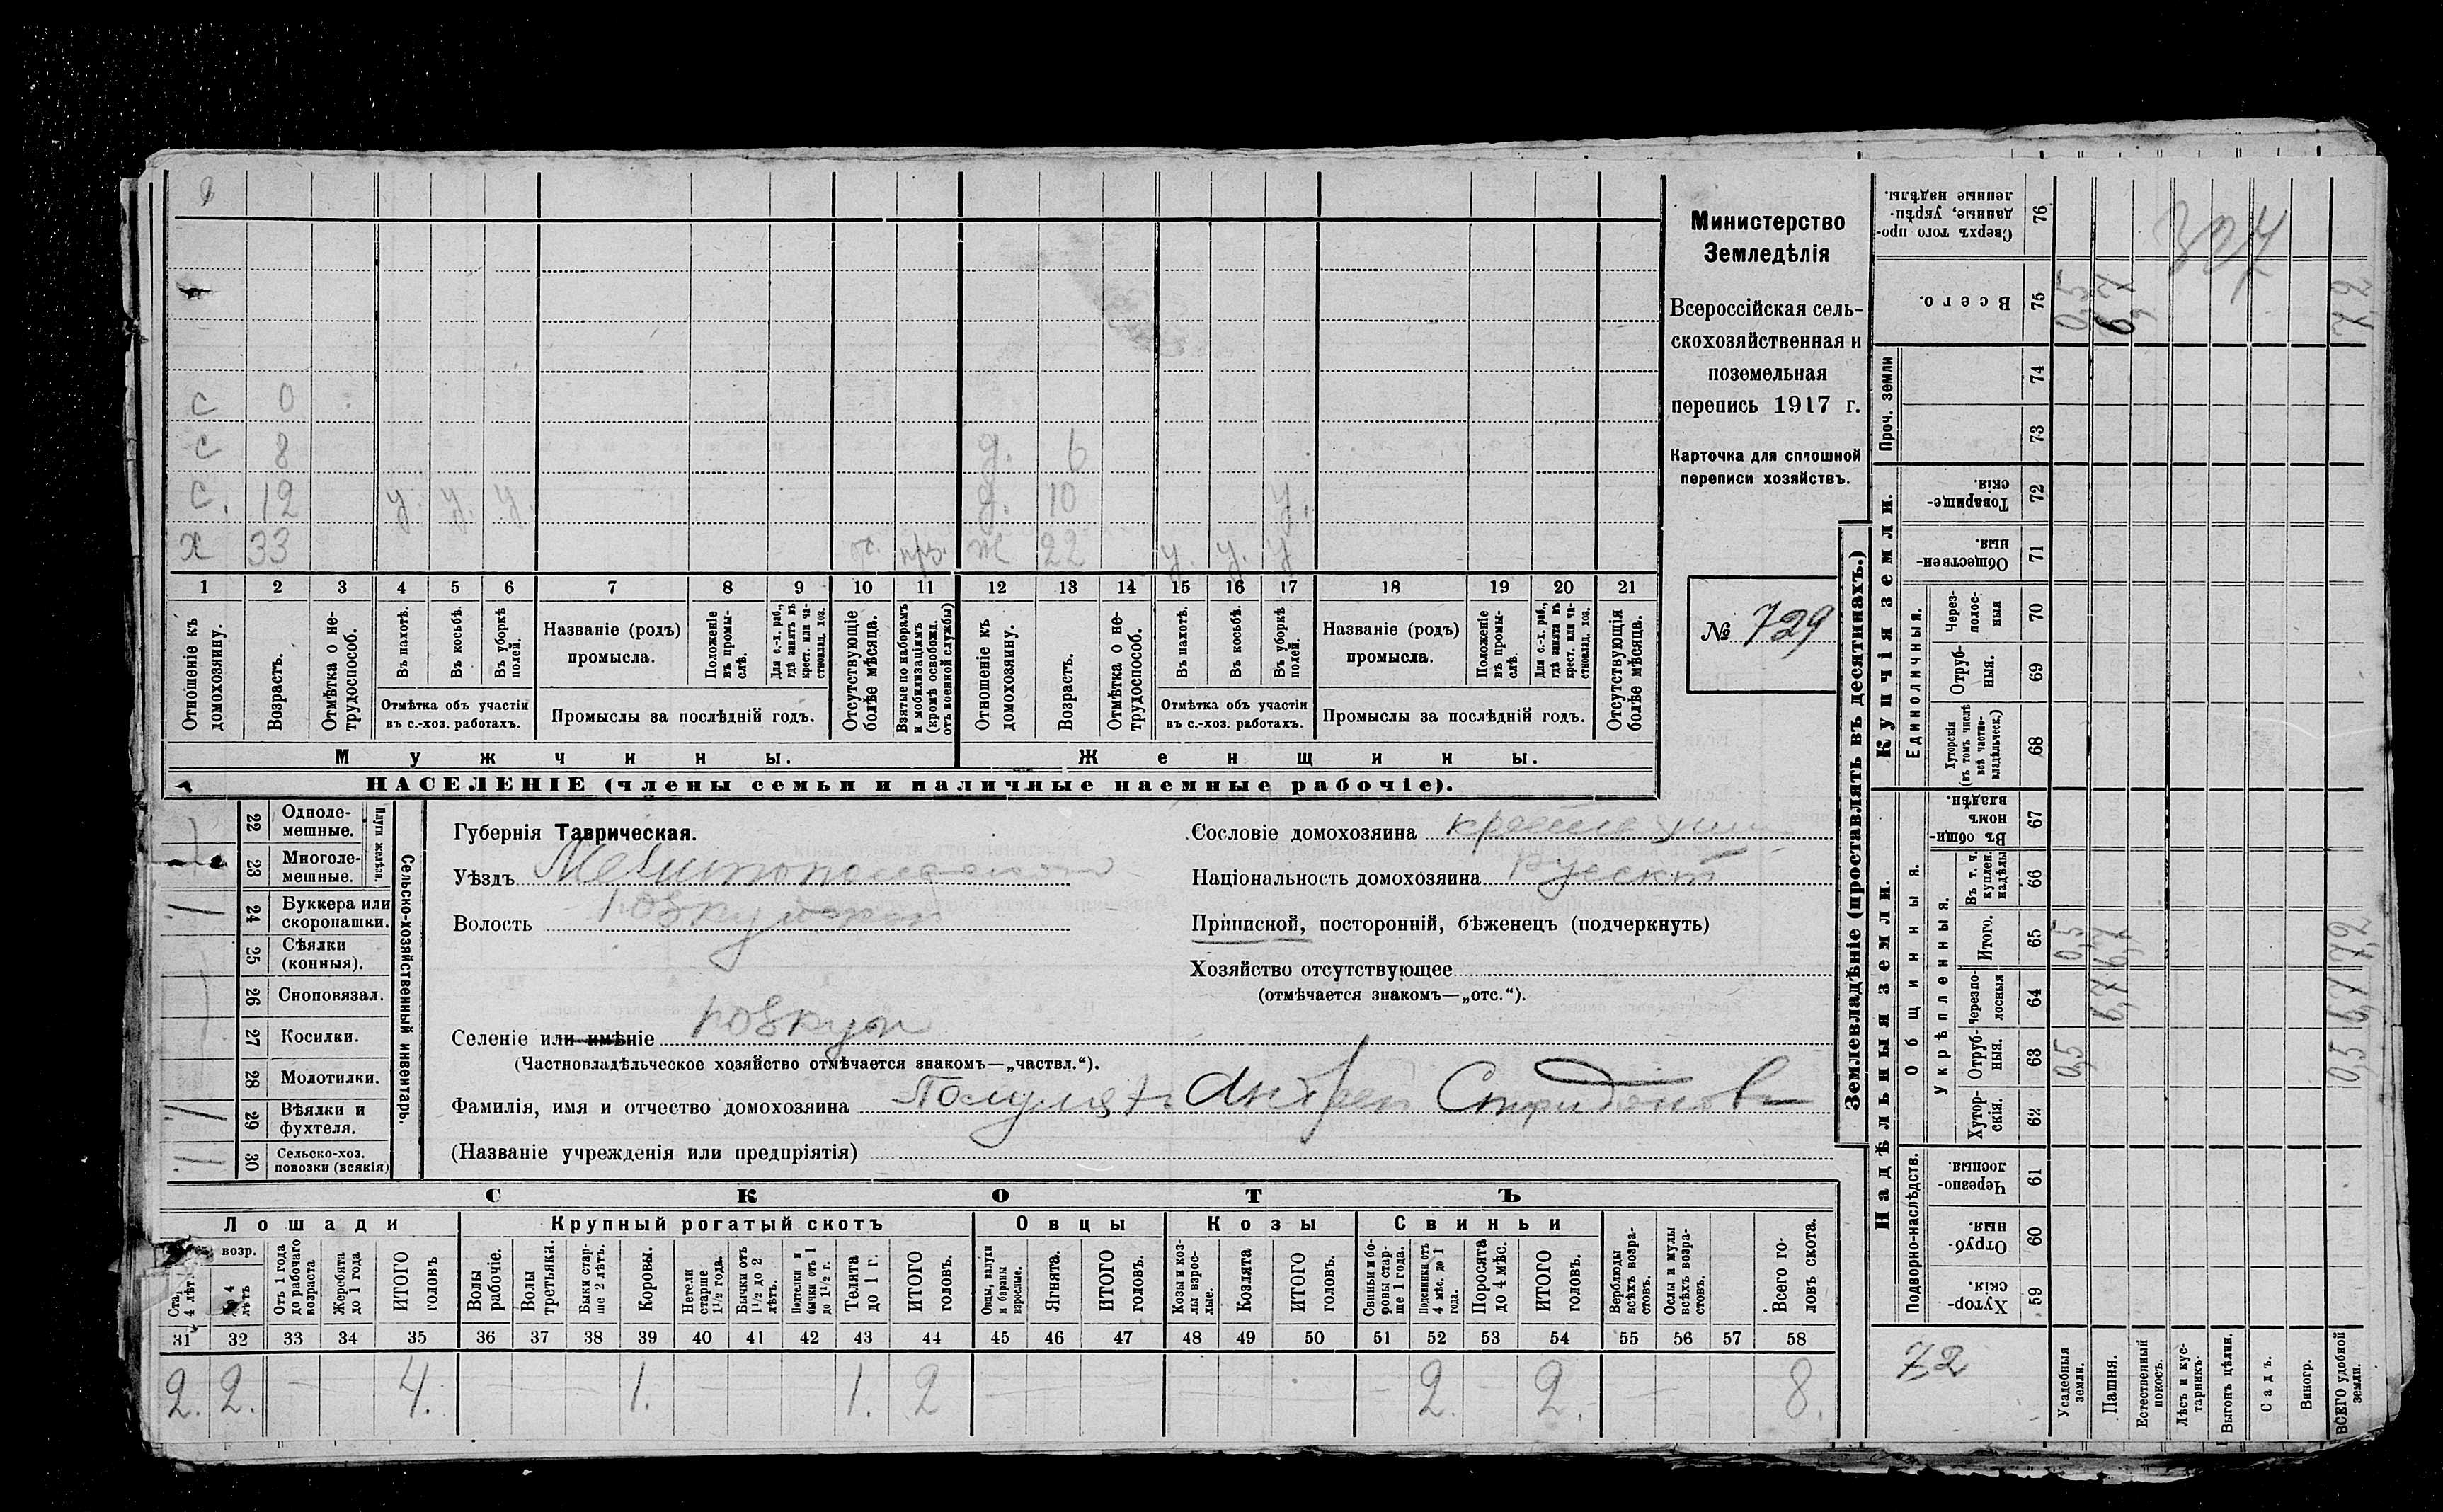 с 0
с 8 д. 6
с. 12 у. у. у. д. 10 у.
х 33 ж 22 у. у. у
1 2 3 4 5 6 7 8 9 10 11 12 13 14 15 16 17 18 19 20 21
Отношеніе къ домохозяину.
Возрастъ.
Отмѣтка о не-
трудоспособ.
Въ пахотѣ.
Въ косьбѣ.
Въ уборкѣ полей.
Отмѣтка объ участіи
въ с.-хоз. работахъ.
Названіе (родъ)
промысла.
Положеніе
въ промы-
слѣ.
Для с.-х. раб.,
гдѣ занятъ въ
крест. или ча-
стновлад. хоз.
Промыслы за послѣдній годъ.
Отсутствующіе
болѣе мѣсяца.
Взятые по наборамъ
и мобилизаціямъ
(кромѣ освобожд.
отъ военной службы)
Отношеніе къ
домохозяину.
Возрастъ.
Отмѣтка о не-
трудоспособ.
Въ пахотѣ.
Въ косьбѣ.
Въ уборкѣ
полей.
Отмѣтка объ участіи
въ с.-хоз. работахъ.
Названіе (родъ)
промысла.
Положеніе
въ промы-
слѣ.
Для с.-х. раб.,
гдѣ занята въ
крест. или ча-
стновлад. хоз.
Промыслы за послѣдній годъ.
Отсутствующія
болѣе мѣсяца.
Мужчины.
Женщины.
НАСЕЛЕНІЕ (члены семьи и наличные наемные рабочіе).
Министерство
Земледѣлія
Всероссійская сель-
скохозяйственная и
поземельная
перепись 1917 г.
Карточка для сплошной
переписи хозяйствъ.
№ 729
22 Одноле-
мешные.
23 Многоле-
мешные.
Плуги желѣзн.
24 Буккера или
скоропашки.
25 Сѣялки
(конныя).
26 Сноповязал.
27 Косилки.
28 Молотилки.
29 Вѣялки и
фухтеля.
30 Сельско-хоз.
повозки (всякія)
Сельско-хозяйственный инвентарь.
Губернія Таврическая.
Уѣздъ Мелитопольский
Волость
Сословіе домохозяина
Національность домохозяина
Приписной, посторонній, бѣженецъ (подчеркнуть)
Хозяйство отсутствующее
(отмѣчается знакомъ—„отс.“).
Селеніе или имѣніе
(Частновладѣльческое хозяйство отмѣчается знакомъ—„частвл.“).
Фамилія, имя и отчество домохозяина Андрей
(Названіе учрежденія или предпріятія)
СКОТЪ
Лошади Крупный рогатый скотъ Овцы Козы Свиньи
возр.
4 лѣт.
до 4
лѣтъ
Отъ 1 года
до рабочаго
возраста
Жеребята
до 1 года
ИТОГО
головъ
Волы
рабочіе.
Волы
третьяки.
Быки стар-
ше 2 лѣтъ.
Коровы.
Нетели
старше
1½ года.
Бычки отъ
1½ до 2
лѣтъ.
Подтелки и
бычки отъ 1
до 1½ г.
Телята
до 1 г.
ИТОГО
головъ.
Овцы, валухи
и бараны
взрослые.
Ягнята.
ИТОГО
головъ.
Козы и коз-
лы взрос-
лые.
Козлята
ИТОГО
головъ.
Свиньи и бо-
ровы стар-
ше 1 года.
Подсвинки отъ
4 мѣс. до 1
года.
Поросята
до 4 мѣс.
ИТОГО
головъ.
Верблюды
всѣхъ возра-
стовъ.
Ослы и мулы
всѣхъ возра-
стовъ.
Всего го-
ловъ скота.
31 32 33 34 35 36 37 38 39 40 41 42 43 44 45 46 47 48 49 50 51 52 53 54 55 56 57 58
2. 2. 4. 1. 1. 2 2. 2. 8.
Землевладѣніе (проставлять въ десятинахъ.)
Сверхъ того про-
данные, укрѣп-
ленные надѣлы.
76
307
Всего.
75 0,5 6,7 7,2
Проч. земли
74
73
Купчія земли.
Товарище-
скія.
72
Обществен-
ныя.
71
Единоличныя.
Через-
полос-
ныя
70
Отруб-
ныя.
69
Хуторскія
(въ томъ числѣ
всѣ частно-
владѣльческ.)
68
Надѣльныя земли.
Общинныя.
Въ общин-
номъ
владѣн.
67
Укрѣпленныя.
Въ т. ч.
куплен.
надѣлы
66
Итого.
65 0,5 6,7 7,2
Черезпо-
лосныя
64 6,7 6,7
Отруб-
ныя.
63 0,5 0,5
Хутор-
скія.
62
Подворно-наслѣдств.
Черезпо-
лосныя.
61
Отруб-
ныя.
60
Хутор-
скія.
59
72
Усадебныя
земли.
Пашня.
Естественный
покосъ.
Лѣсъ и кус-
тарникъ.
Выгонъ цѣлин.
Садъ.
Виногр.
ВСЕГО удобной
земли.